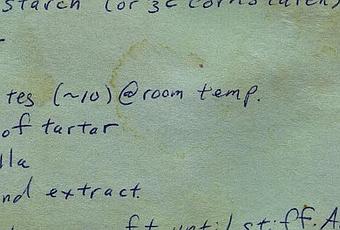 starch (or 3c cornstarch)
tes (~10) @ room temp.
of tartar
lla
nd extract.
ft until stiff. A